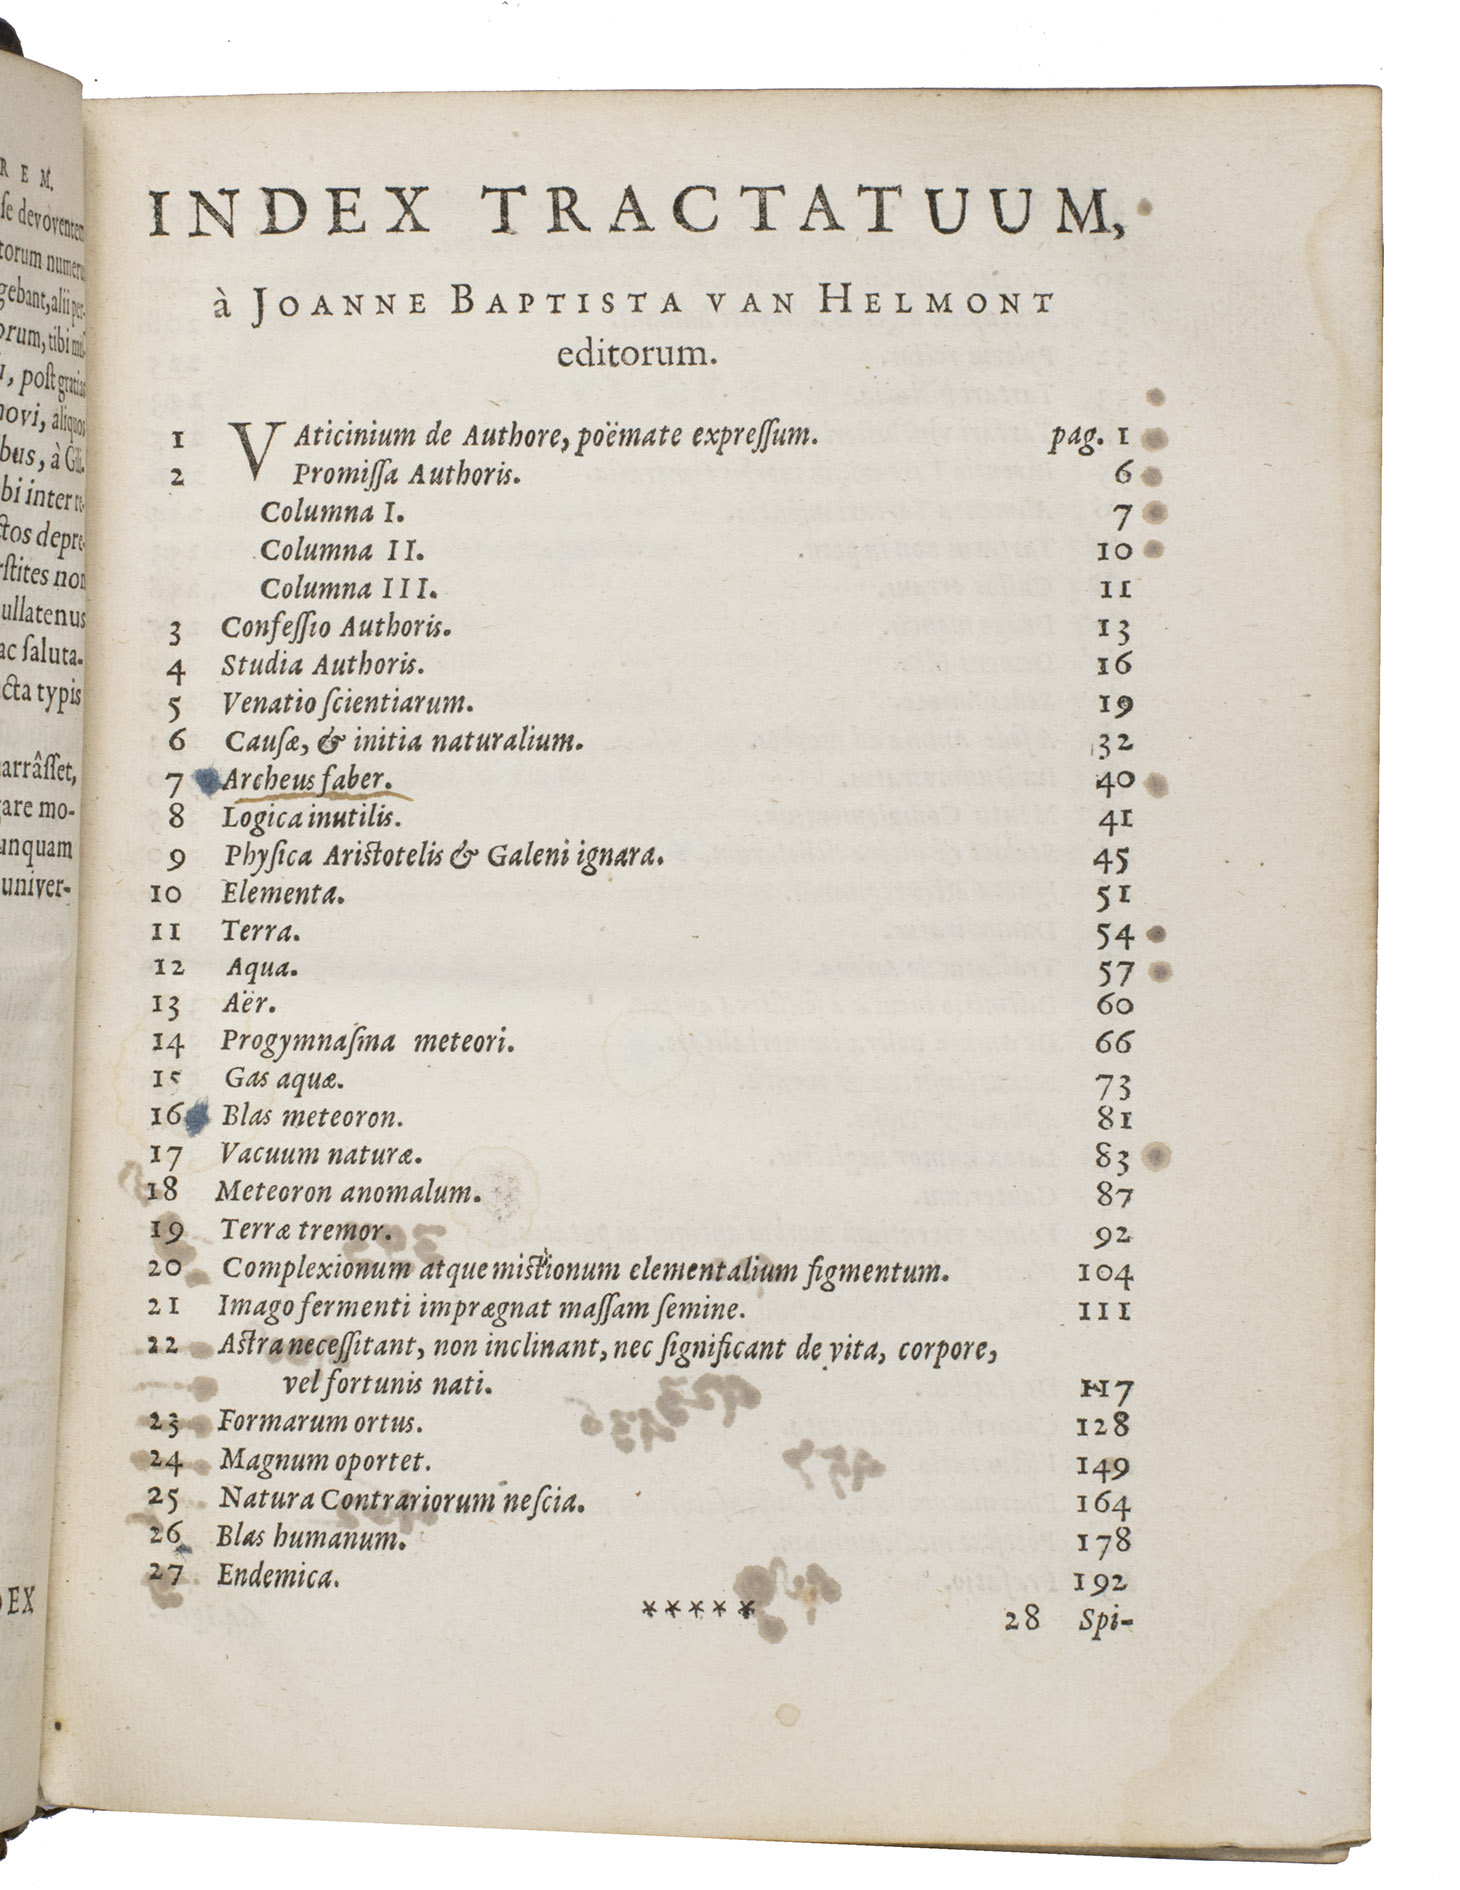 R E M.
se devoventem
torum numeru
gebant, alii per-
orum, tibi
, post gratias
novi, aliquos
bus, à Gili.
bi inter re-
ctos depre-
rstites non
ullatenus
ac saluta-
cta typis
arrâsset,
gare mo-
unquam
univer-
DEX
INDEX TRACTATUUM,
à JOANNE BAPTISTA VAN HELMONT
editorum.
1 VAticinium de Authore, poëmate expressum. pag. 1
2 Promissa Authoris. 6
Columna I. 7
Columna II. 10
Columna III. 11
3 Confessio Authoris. 13
4 Studia Authoris. 16
5 Venatio scientiarum. 19
6 Causæ, & initia naturalium. 32
7 Archeus faber. 40
8 Logica inutilis. 41
9 Physica Aristotelis & Galeni ignara. 45
10 Elementa. 51
11 Terra. 54
12 Aqua. 57
13 Aër. 60
14 Progymnasma meteori. 66
15 Gas aquæ. 73
16 Blas meteoron. 81
17 Vacuum naturæ. 83
18 Meteoron anomalum. 87
19 Terræ tremor. 92
20 Complexionum atque mistionum elementalium figmentum. 104
21 Imago fermenti imprægnat massam semine. 111
22 Astra necessitant, non inclinant, nec significant de vita, corpore,
vel fortunis nati. 117
23 Formarum ortus. 128
24 Magnum oportet. 149
25 Natura Contrariorum nescia. 164
26 Blas humanum. 178
27 Endemica. 192
***** 28 Spi-